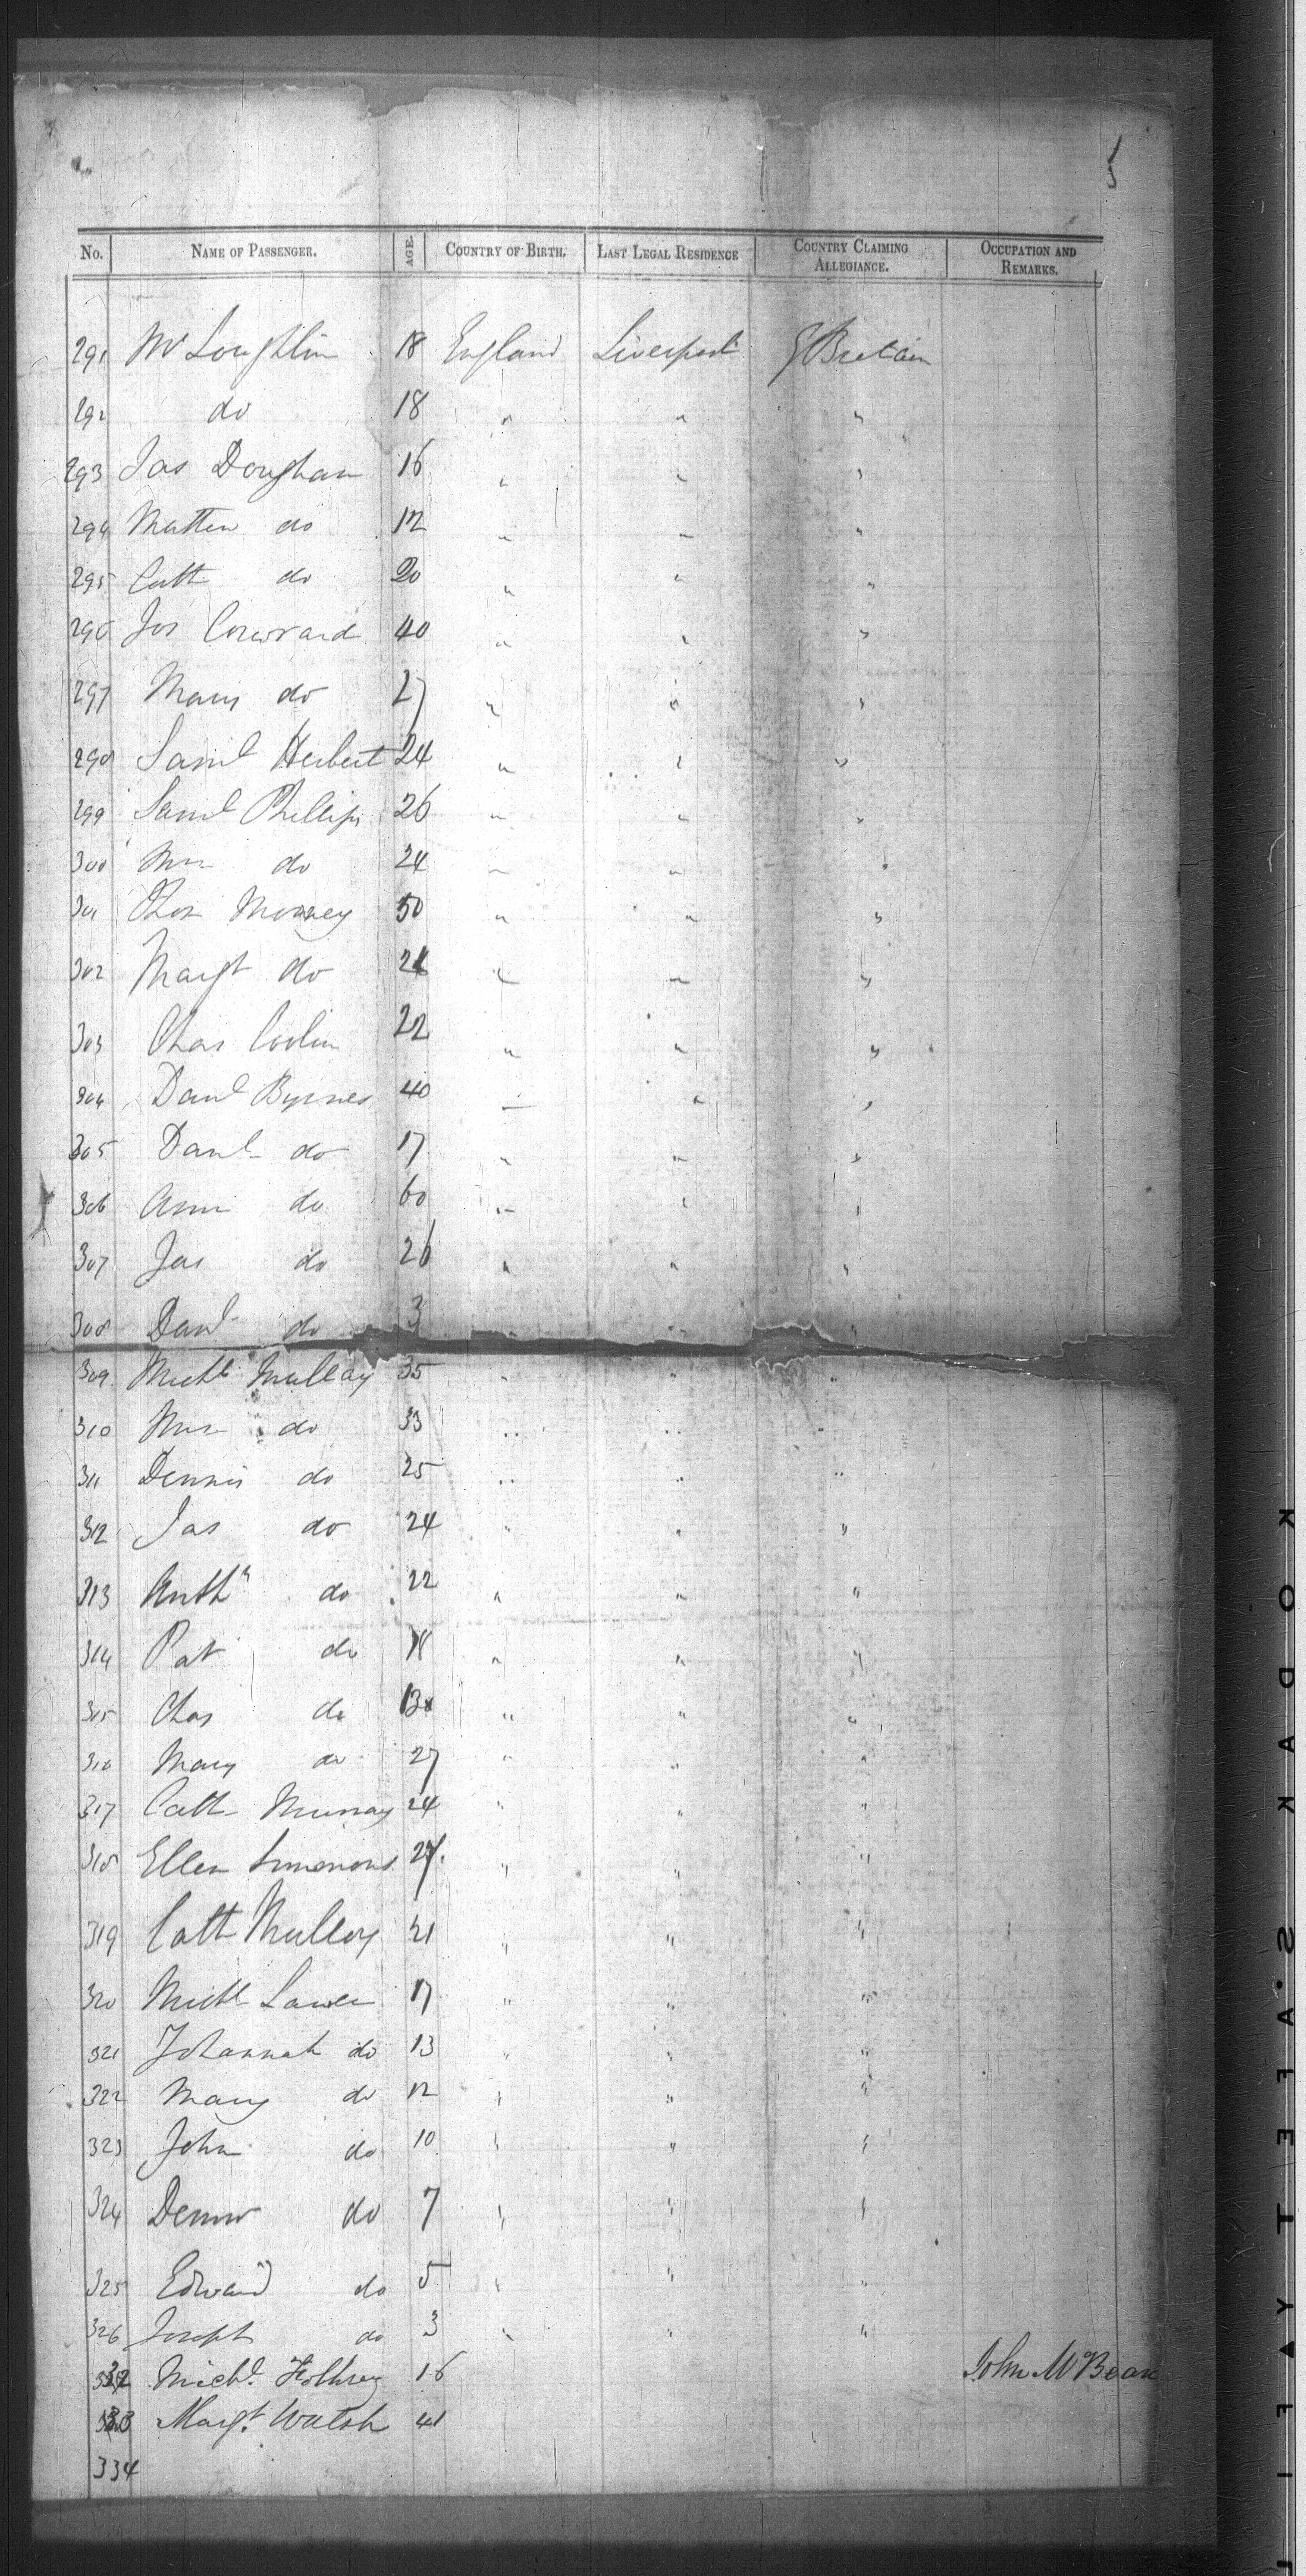 5
No. NAME OF PASSENGER. AGE. COUNTRY OF BIRTH. LAST LEGAL RESIDENCE COUNTRY CLAIMING ALLEGIANCE. OCCUPATION AND REMARKS.
291 Mc Loughlin 18 England Liverpool G Britain
292 do 18 " " "
293 Jas Doughan 16 " " "
294 Matten do 12 " " "
295 Cath do 20 " " "
296 Jos Conward 40 " " "
297 Mary do 27 " " "
298 Saml Herbert 24 " " "
299 Saml Phillips 26 " " "
300 Mrs do 24 " " "
301 Thos Morrey 50 " " "
302 Margt do 24 " " "
303 Chas Conlin 22 " " "
304 Danl Byrnes 40 " " "
305 Danl do 17 " " "
306 Ann do 60 " " "
307 Jas do 26 " " "
308 Danl do 3 " " "
309 Michl Mullay 35 " " "
310 Mrs do 33 " " "
311 Dennis do 25 " " "
312 Jas do 24 " " "
313 Anthy do 22 " " "
314 Pat do 18 " " "
315 Chas do 13 " " "
316 Mary do 27 " " "
317 Cath Murray 24 " " "
318 Ellen Simmons 27 " " "
319 Cath Mulloy 21 " " "
320 Michl Lawler 17 " " "
321 Johannah do 13 " " "
322 Mary do 12 " " "
323 John do 10 " " "
324 Dennis do 7 " " "
325 Edward do 5 " " "
326 Joseph do 3 " " "
332 Michl. 16 John McBean
333 Margt. Walsh 41
334
KODAK S.AFETY